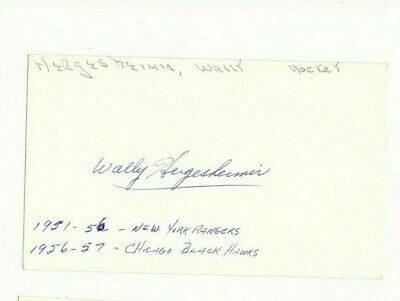 HERGESHEIMIN, WALLY HOCKEY
Wally Hergesheimer
1951-56 - NEW YORK RANGERS
1956-57 - CHICAGO BLACK HAWKS